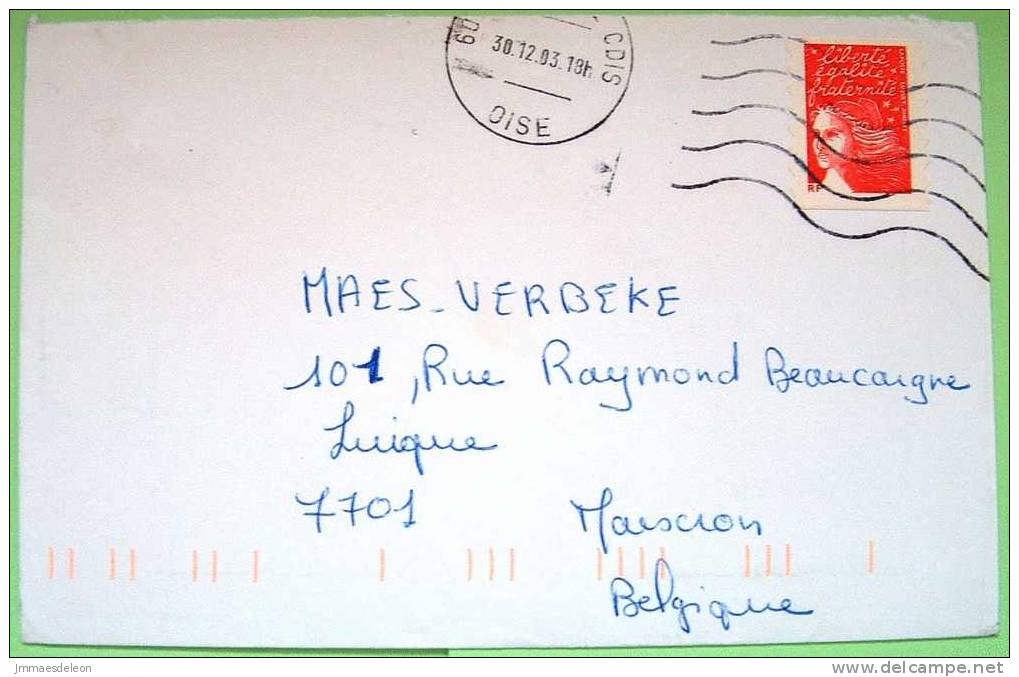 60
CDIS
30.12.03.18h
OISE
liberté
égalité
fraternité
RF
MAES-VERBEKE
101, Rue Raymond Beaucaigne
Luigue
7701 Mouscron
Belgique
jmmaesdeleon
www.delcampe.net